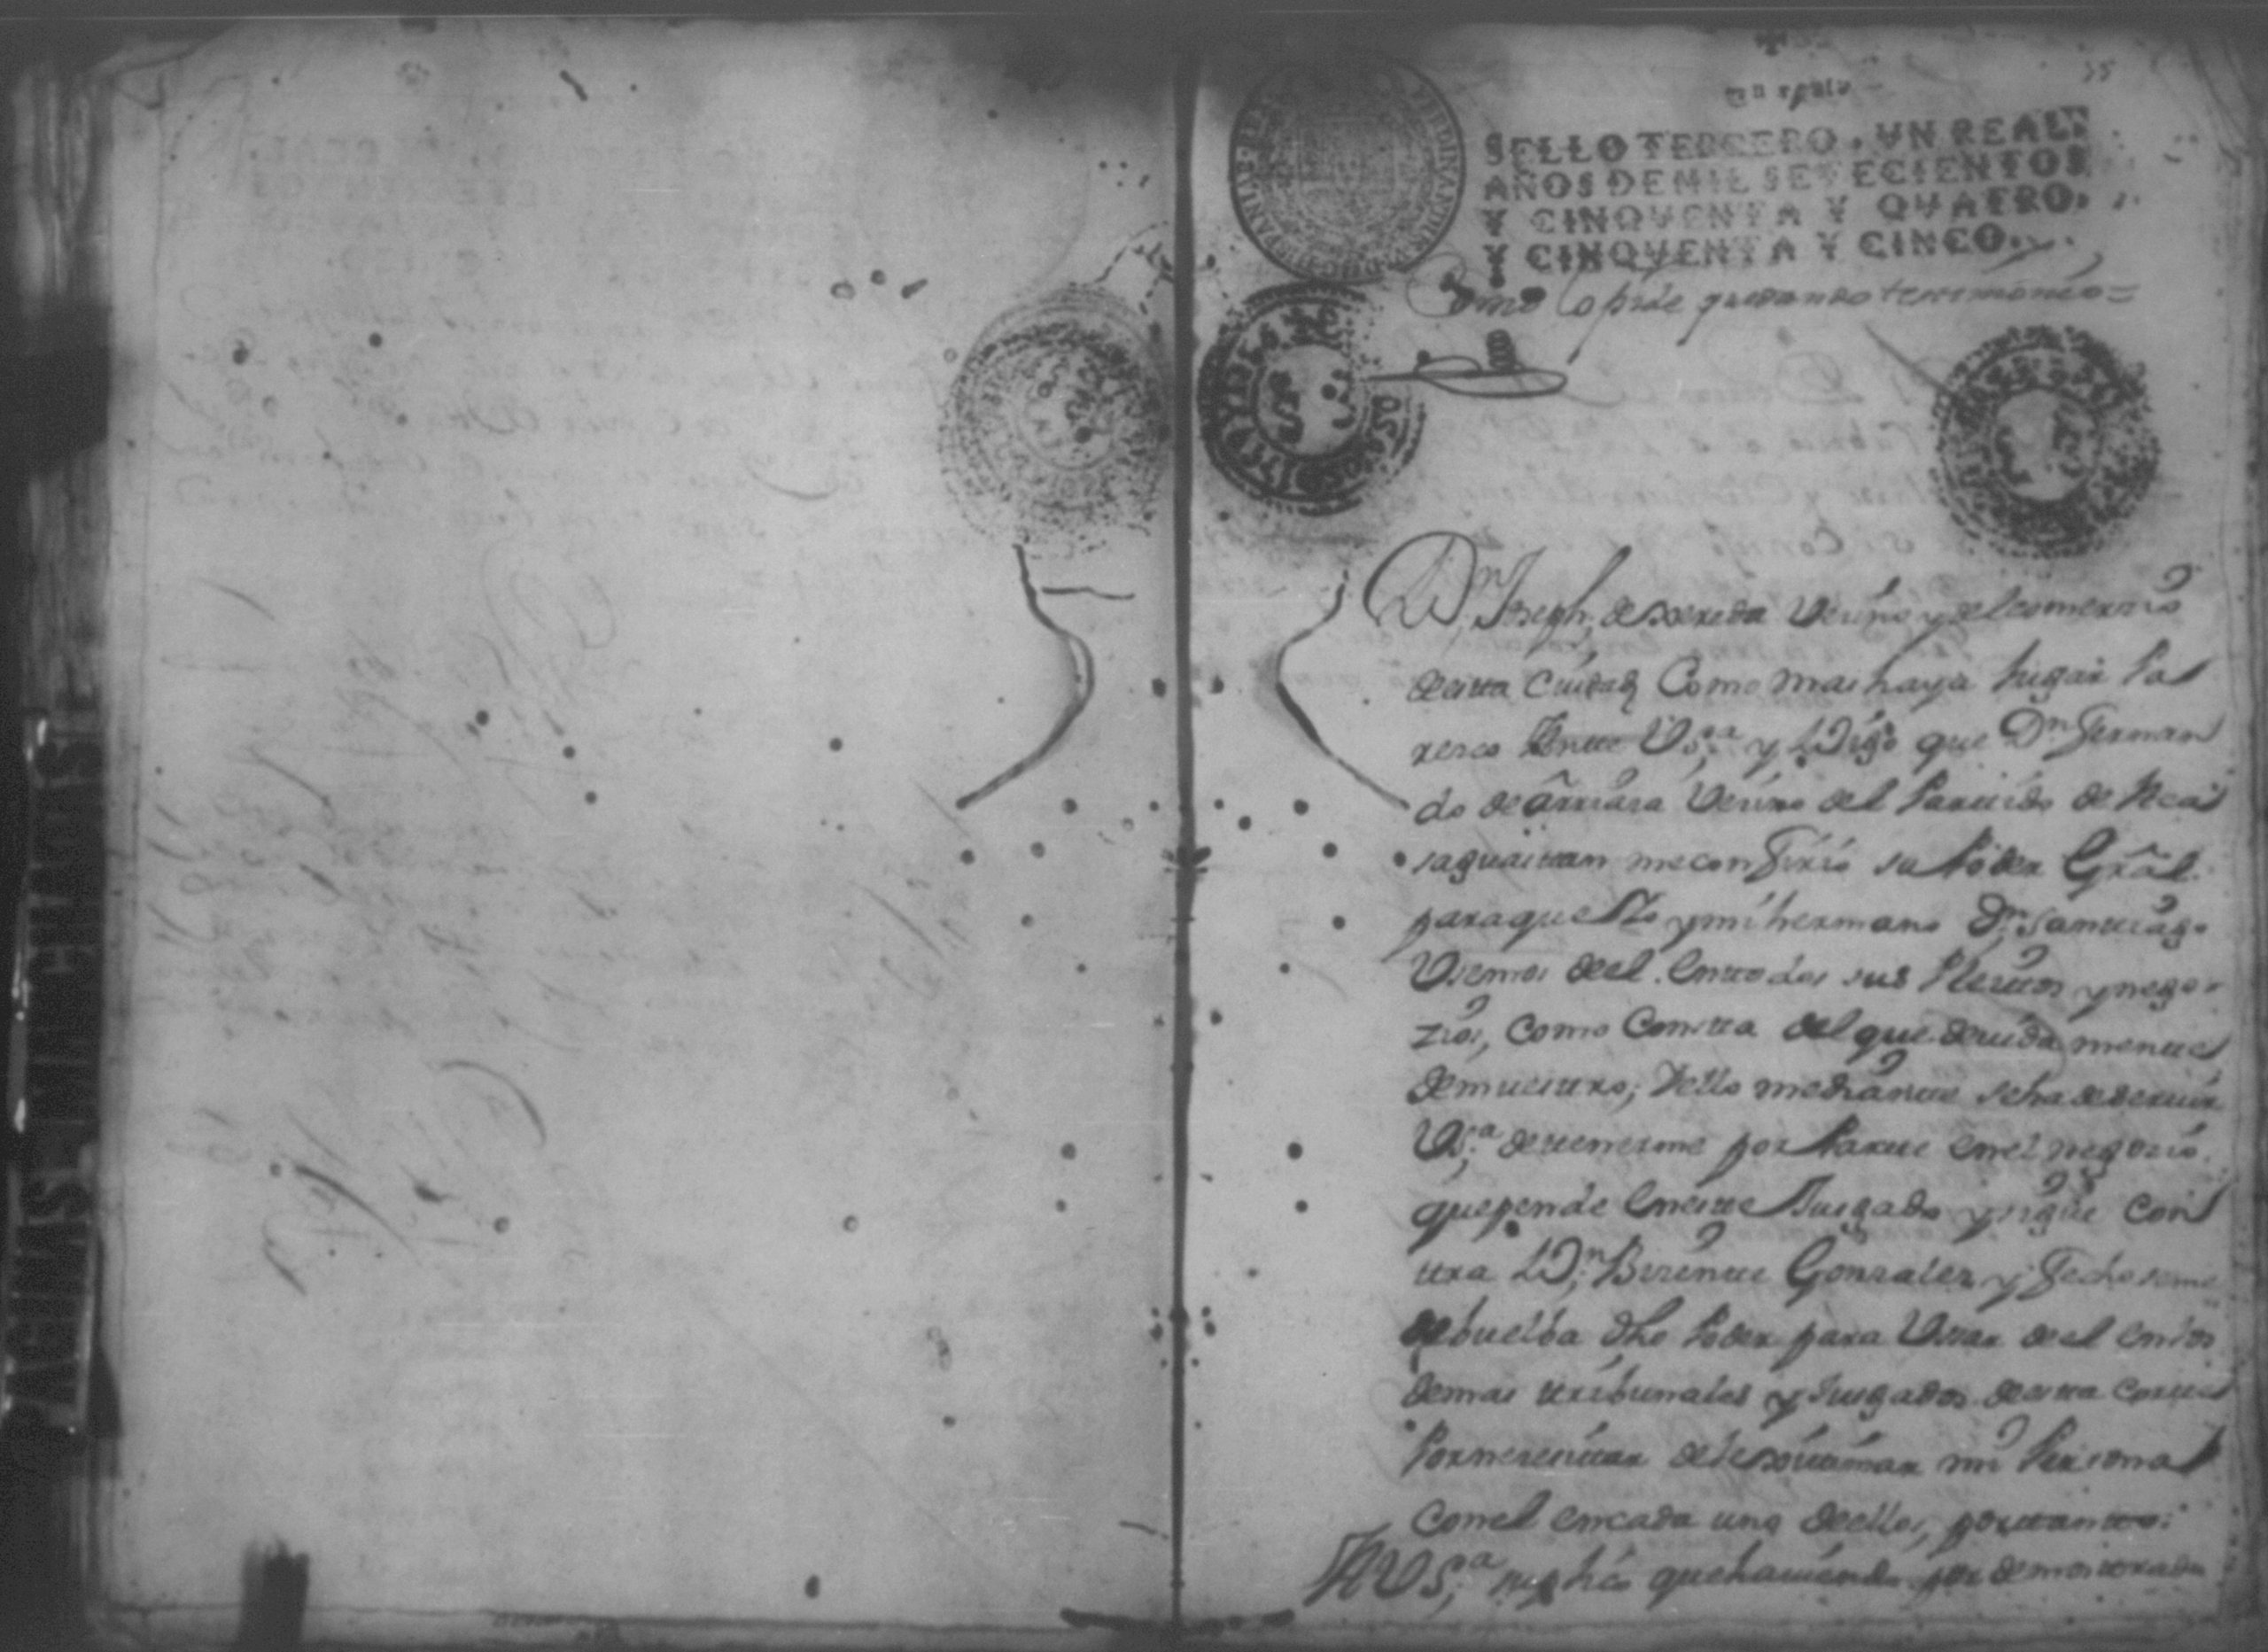 35
Un real
SELLO TERCERO, UN REAL,
AÑOS DE MIL SETECIENTOS
Y CINQVENTA Y QVATRO,
Y CINQVENTA Y CINCO.
Como lo pide quedando testimonio=
Dn. Joseph, de Vezino y del comerzio
de esta Ciudad Como mas haya lugar Pa
resco Ante VSª. y Digo que Dn. Fernan
do de Arriara Vezino del Partido de
me confirio su Poder Grãl.
para que Yo y mi hermano Dn. Santiago
Usemos de el. en todos sus Pleitos y nego
zios, Como Consta del que devidamente
demuestro, Y ello mediante se ha de servir
VSª. de tenerme por Parte en el negozio
que pende en este Jusgado y sigue Con
tra Dn. Bisente Gonzales y Fecho se me
debuelba dho Poder para Usar de el en los
demas tribunales y Jusgados de esta Corte
Por nesesitar de lexitimar mi Persona
Con el en cada uno de ellos, por tanto:
A VSª. suplico que haviendo por demostrado